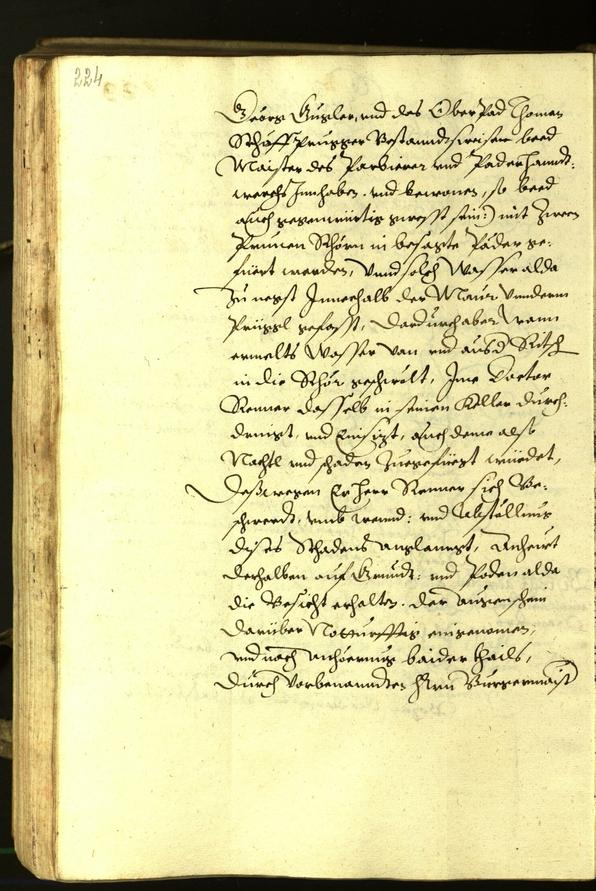 224
Geörg Gugler, und des Ober Pad Thoman
Schöffprugger Bestanndtsweise beed
Maister des Parbierer und Paderhanndt:
werchs Innhaben. und bewonen, so beed
auch gegenwürtig gwesst sein:) mit zween
Prunen Rhörn in besagte Päder ge:
füert werden, Unnd solch Wasser alda
zu negst Innerhalb der Maur unnderm
Prüggl gefasst, Dardurch aber, wann
ermelts Wasser von und aus der Ritsch
in die Rhör geckhört, Ime Doctor
Renner dasselb in seinen Keller durch:
dringt, und Einsizt, auch deme also
Nachtl und schaden Zuegefüegt würdet,
Desswegen Er Herr Renner sich Be:
schwerdt, umb wennd: und Abstöllung
dises Schadens anglanngt, Anheut
derhalben auf Grundt: und Poden alda
die Besicht erhalten. der augenschein
darüber Notturfftig eingenomen,
und nach anhöerung baider thails,
durch vorbenannndten Herrn Burgermaist